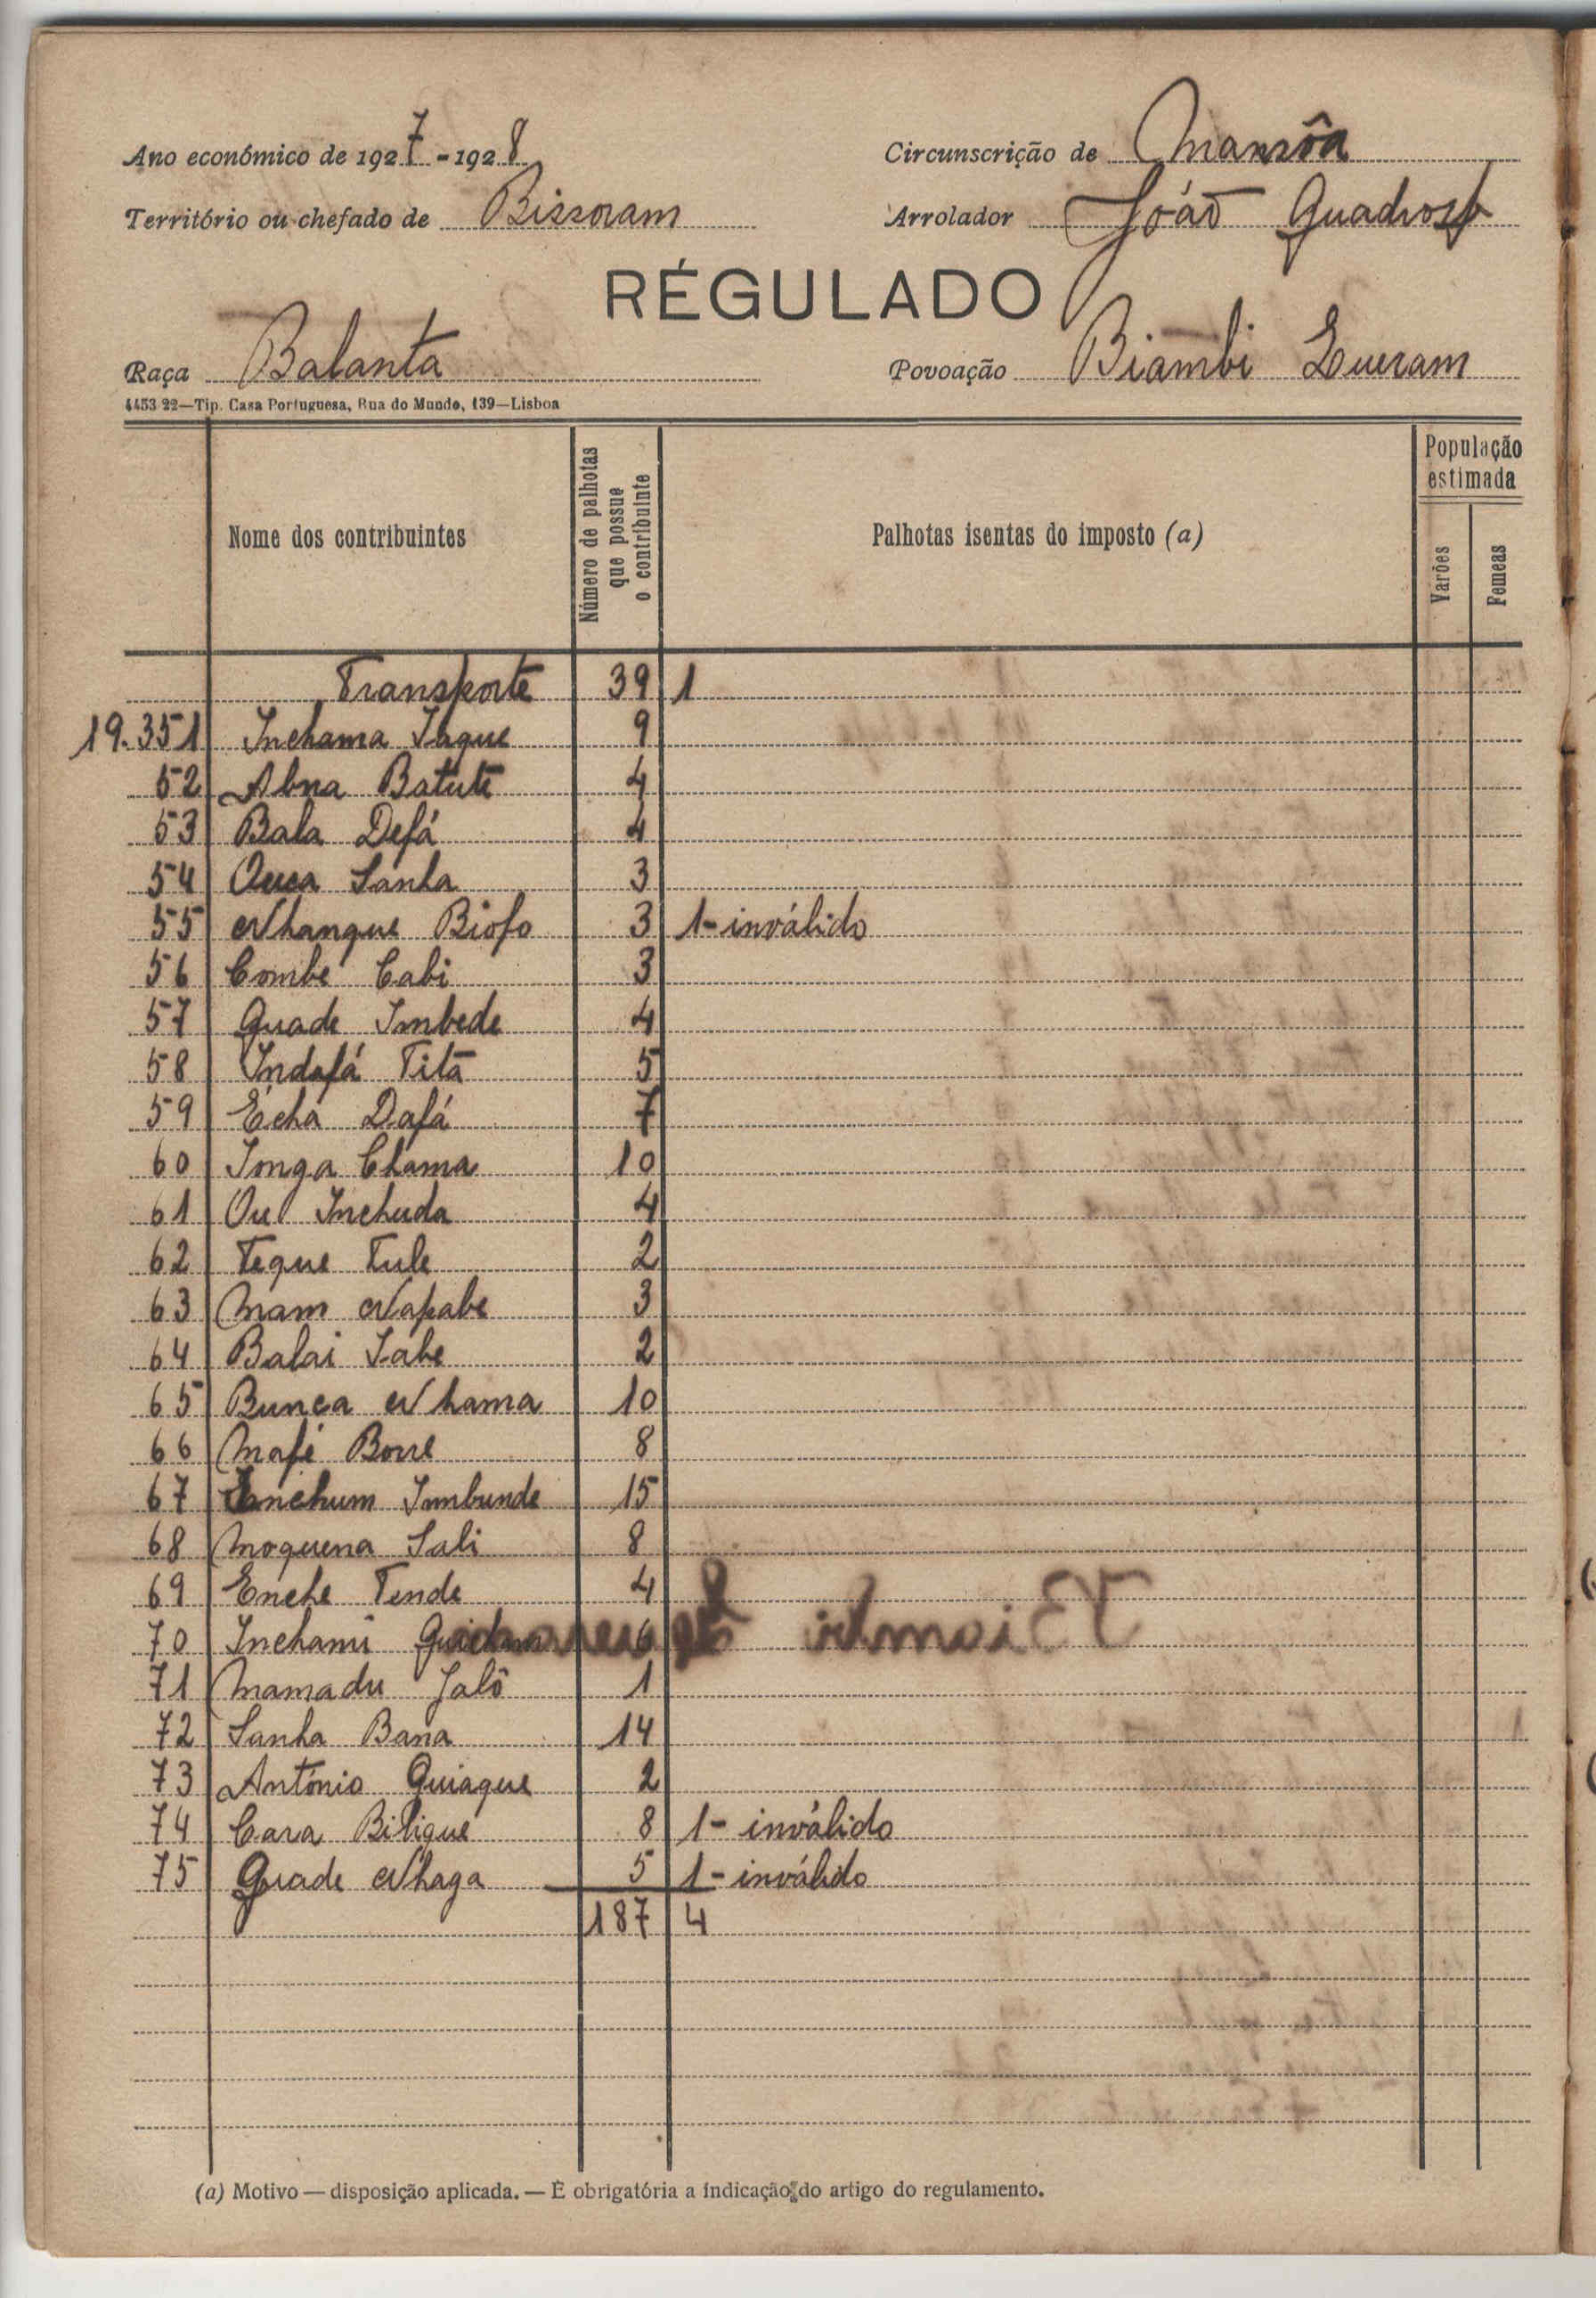 Ano económico de 1927-1928
Circunscrição de Mansôa
Território ou chefado de Bissoram
Arrolador João Quadros
RÉGULADO
Raça Balanta
Povoação Biambi
4453-22—Tip. Casa Portuguesa, Rua do Mundo, 139—Lisboa
Nome dos contribuintes
Número de palhotas que possue o contribuinte
Palhotas isentas do imposto (a)
População estimada
Varões
Femeas
Transporte 39 1
19.351 Inchama Iague 9
52 Abna Batute 4
53 Bala Defá 4
54 Ouca Sanha 3
55 Nhangue Biofo 3 1-inválido
56 Combé Cabi 3
57 Quade Imbede 4
58 Indafá Titã 5
59 Echá Dafá 7
60 Ionga Chama 10
61 Ou Inchuda 4
62 Teque Tule 2
63 Mam Napabe 3
64 Balai Sabe 2
65 Bunca Nhama 10
66 Mafé Borre 8
67 Imbunde 15
68 Moquena Sali 8
69 Enche Tende 4
70 Inchami 6
71 Mamadu Jalô 1
72 Sanha Bana 14
73 António Quiaque 2
74 Cara Biligué 8 1- inválido
75 Quade Nhaga 5 1-inválido
187 4
(a) Motivo — disposição aplicada. — É obrigatória a indicação do artigo do regulamento.